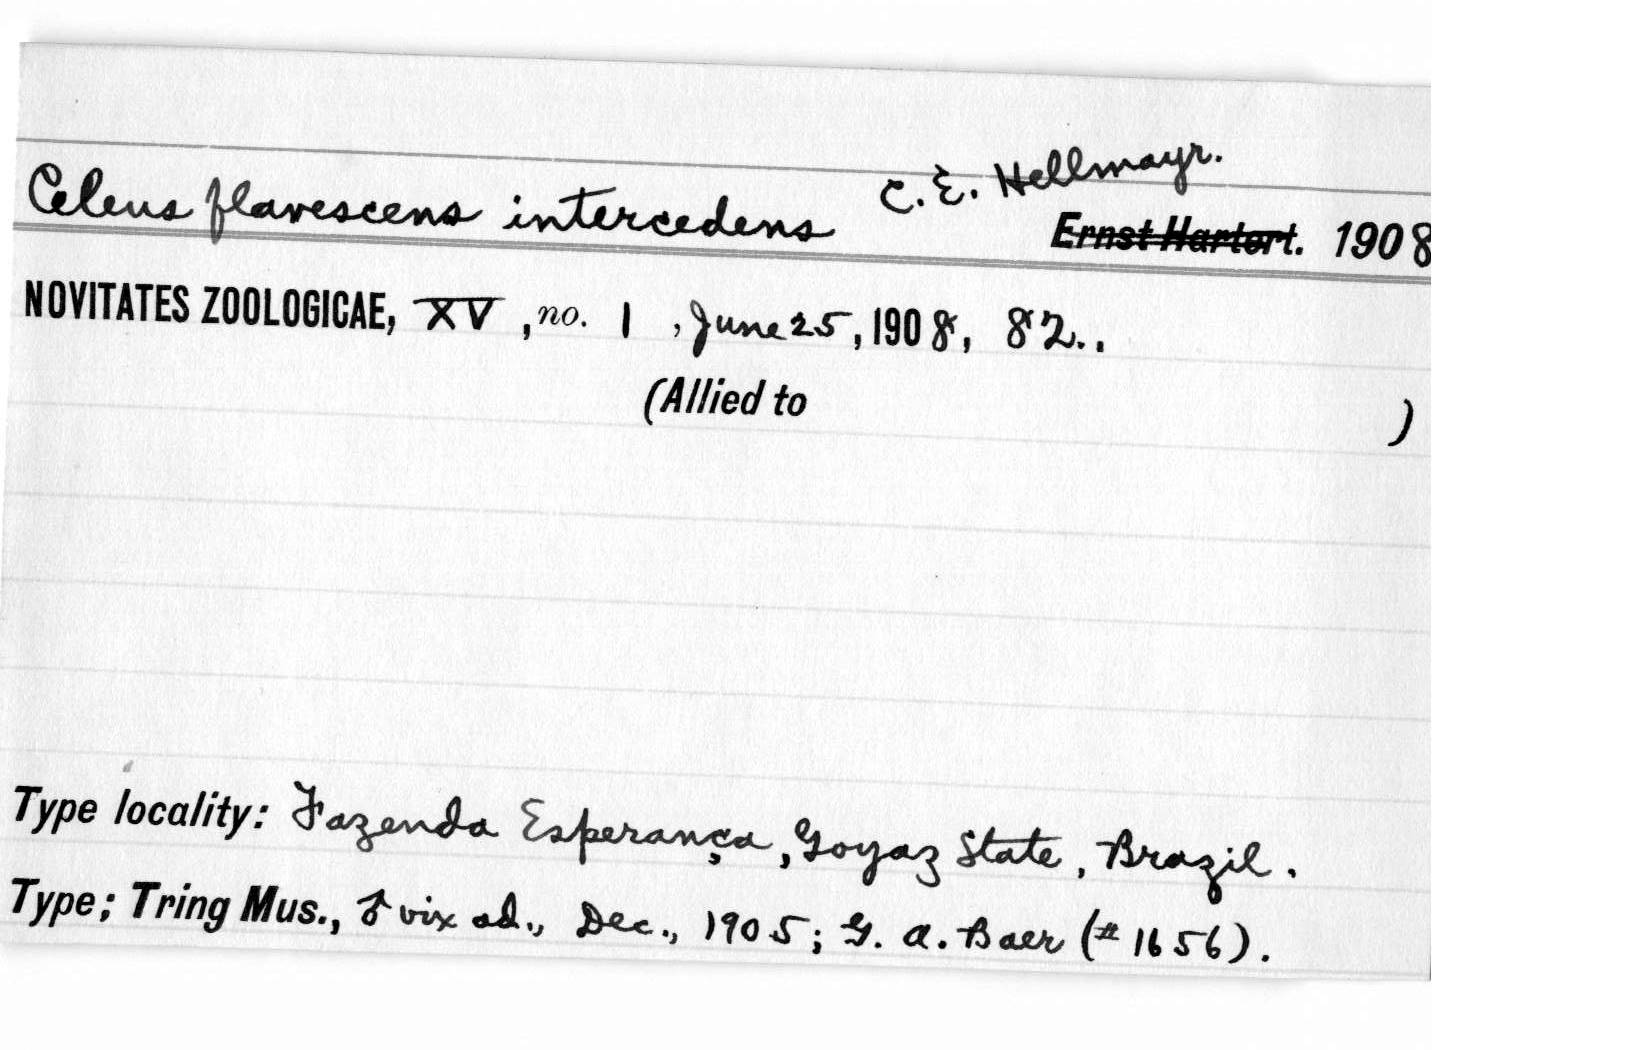 Celeus flavescens intercedens C. E. Hellmayr.
Ernst Hartert. 1908
NOVITATES ZOOLOGICAE, XV, no. 1, June 25, 1908, 82..
(Allied to )
Type locality: Fazenda Esperança, Goyaz State, Brazil.
Type; Tring Mus., ♂ vix ad., Dec., 1905; G. A. Baer (# 1656).